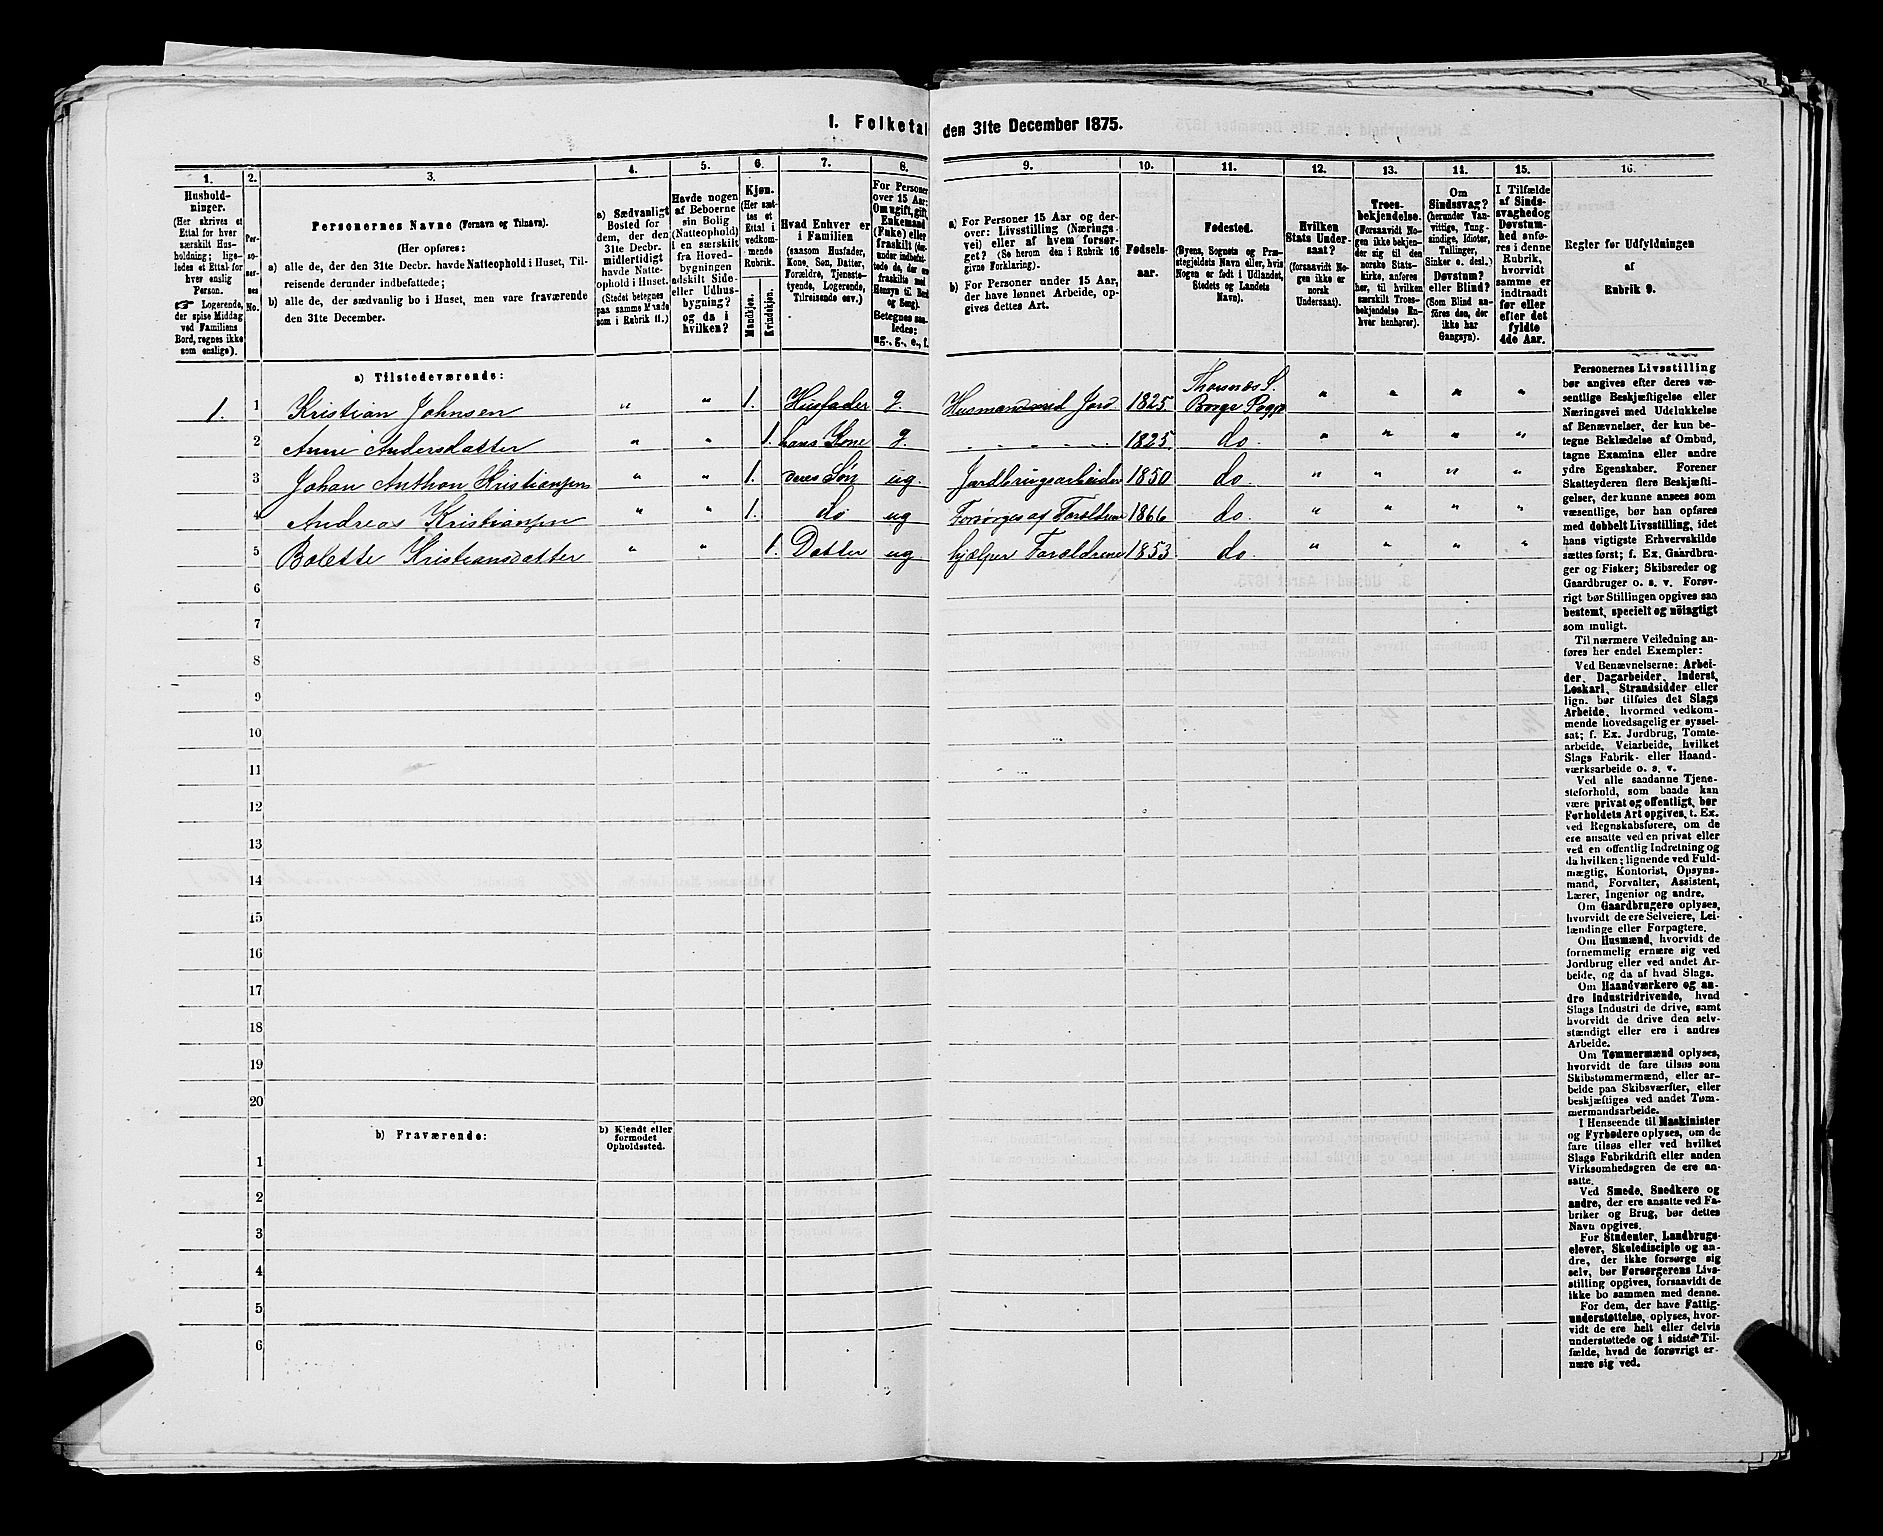 1. Folketal den 31te December 1875.
1. 2. 3. 4. 5. 6. 7. 8. 9. 10. 11. 12. 13. 14. 15. 16.
Hushold-
ninger.
(Her skrives et
Ettal for hver
særskilt Hus-
holdning; lige-
ledes et Ettal for
hver enslig
Person.
☞ Logerende,
der spise Middag
ved Familiens
Bord, regnes ikke
som enslige).
Per-
so-
ner-
nes
No.
Personernes Navne (Fornavn og Tilnavn).
(Her opføres:
a) alle de, der den 31te Decbr. havde Natteophold i Huset, Til-
reisende derunder indbefattede;
b) alle de, der sædvanlig bo i Huset, men vare fraværende
den 31te December.
a) Sædvanligt
Bosted for
dem, der den
31te Decbr.
midlertidigt
havde Natte-
ophold i Huset.
(Stedet betegnes
paa samme Maade
som i Rubrik 11.)
Havde nogen
af Beboerne
sin Bolig
(Natteophold)
i en særskilt
fra Hoved-
bygningen
adskilt Side-
eller Udhus-
bygning?
og da i
hvilken?
Kjøn.
(Her sæt-
tes et
Ettal i
vedkom-
mende
Rubrik.
Mandkjøn.
Kvindekjøn.
Hvad Enhver er
i Familien
(saasom Husfader,
Kone, Søn, Datter,
Forældre, Tjeneste-
tyende, Logerende,
Tilreisende osv.)
For Personer
over 15 Aar:
Om ugift, gift,
Enkemand
(Enke) eller
fraskilt (der-
under indbefat-
tede de, der ere
fraskilte med
Hensyn til Bord
og Seng).
Betegnes saa-
ledes:
ug., g., e., f.
a) For Personer 15 Aar og der-
over: Livsstilling (Nærings-
vei) eller af hvem forsør-
get? (Se herom den i Rubrik 16
givne Forklaring).
b) For Personer under 15 Aar,
der have lønnet Arbeide, op-
gives dettes Art.
Fødsels-
aar.
Fødested.
(Byens, Sognets og Præ-
stegjeldets Navn eller, hvis
Nogen er født i Udlandet,
Stedets og Landets
Navn).
Hvilken
Stats Under-
saat?
(forsaavidt No-
gen ikke er
norsk
Undersaat).
Troes-
bekjendelse.
(Forsaavidt No-
gen ikke bekjen-
der sig til den
norske Stats-
kirke, anføres
her, til hvilken
særskilt Troes-
bekjendelse En-
hver henhører).
Om
Sindssvag?
(herunder Van-
vittige, Tung-
sindige, Idioter,
Tullinger,
Sinker o. desl.)
Døvstum?
eller Blind?
(Som Blind an-
føres den, der
ikke har
Gangsyn).
I Tilfælde
af Sinds-
svaghed og
Døvstum-
hed anfø-
res i denne
Rubrik,
hvorvidt
samme er
indtraadt
før eller
efter det
fyldte
4de Aar.
Regler for Udfyldningen
af
Rubrik 9.
a) Tilstedeværende:
1. 1 Kristian Johnsen " " 1. Husfader g. Husmand med Jord 1825 Thorsnæs S. Borge Sogn " " " "
2 Anne Andersdatter " " 1. hans Kone g. " " " " 1825. do. " " " "
3 Johan Anthon Kristiansen " " 1. deres Søn ug. Jordbrugsarbeider 1850 do. " " " "
4 Andreas Kristiansen " " 1. do ug Forsørges af Forældrene 1866 do. " " " "
5 Bolette Kristiansdatter " " 1. Datter ug hjælper Forældrene 1853 do. " " " "
6
7
8
9
10
11
12
13
14
15
16
17
18
19
20
b) Fraværende:
b) Kjendt eller
formodet
Opholdssted.
1
2
3
4
5
6
Personernes Livsstilling
bør angives efter deres væ-
sentlige Beskjæftigelse eller
Næringsvei med Udelukkelse
af Benævnelser, der kun be-
tegne Beklædelse af Ombud,
tagne Examina eller andre
ydre Egenskaber. Forener
Skatteyderen flere Beskjæfti-
gelser, der kunne ansees som
væsentlige, bør han opføres
med dobbelt Livsstilling, idet
hans vigtigste Erhvervskilde
sættes først; f. Ex. Gaardbru-
ger og Fisker; Skibsreder og
Gaardbruger o. s. v. Forøv-
rigt bør Stillingen opgives saa
bestemt, specielt og nöiagtigt
som muligt.
Til nærmere Veiledning an-
føres her endel Exempler:
Ved Benævnelserne: Arbei-
der, Dagarbeider, Inderst,
Løskarl, Strandsidder eller
lign. bør tilføies det Slags
Arbeide, hvormed vedkom-
mende hovedsagelig er syssel-
sat; f. Ex. Jordbrug, Tomte-
arbeide, Veiarbeide, hvilket
Slags Fabrik- eller Haand-
værksarbeide o. s. v.
Ved alle saadanne Tjene-
steforhold, som baade kan
være privat og offentligt, bør
Forholdets Art opgives, t. Ex.
ved Regnskabsførere, om de
ere ansatte ved en privat eller
ved en offentlig Indretning og
da hvilken; lignende ved Fuld-
mægtig, Kontorist, Opsyns-
mand, Forvalter, Assistent,
Lærer, Ingeniør og andre.
Om Gaardbrugere oplyses,
hvorvidt de ere Selveiere, Lei-
lændinge eller Forpagtere.
Om Husmænd, hvorvidt de
fornemmelig ernære sig ved
Jordbrug eller ved andet Ar-
beide, og da af hvad Slags.
Om Haandværkere og an-
dre Industridrivende, hvad
Slags Industri de drive, samt
hvorvidt de drive den selv-
stændigt eller ere i andres
Arbeide.
Om Tømmermænd oplyses,
hvorvidt de fare tilsøs som
Skibstømmermænd, eller ar-
beide paa Skibsværfter, eller
beskjæftiges ved andet Tøm-
mermandsarbeide.
I Henseende til Maskinister
og Fyrbødere oplyses, om de
fare tilsøs eller ved hvilket
Slags Fabrikdrift eller anden
Virksomhedsgren de ere an-
satte.
Ved Smede, Snedkere og
andre, der ere ansatte ved Fa-
briker og Brug, bør dettes
Navn opgives.
For Studenter, Landbrugs-
elever, Skoledisciple og an-
dre, der ikke forsørge sig
selv, bør Forsørgerens Livs-
stilling opgives, forsaavidt de
ikke bo sammen med denne.
For dem, der have Fattig-
understøttelse, oplyses, hvor-
vidt de ere helt eller delvis
understøttede og i sidste Til-
fælde, hvad de forøvrigt er-
nære sig ved.